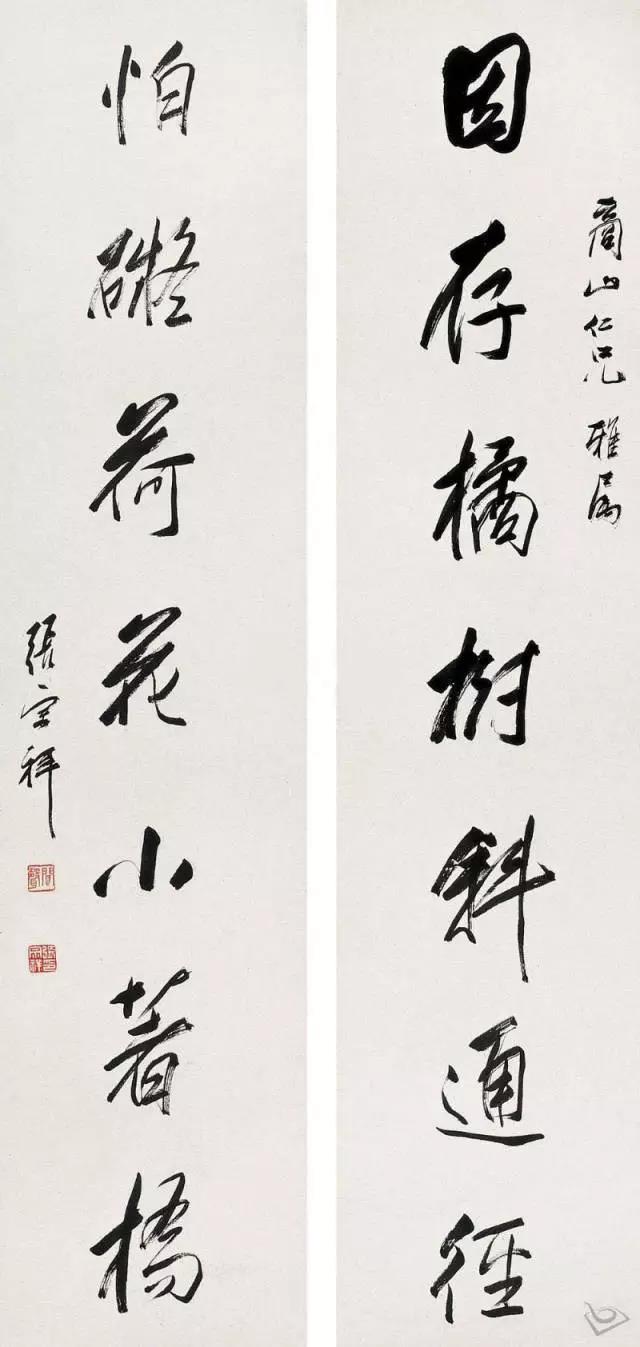 商山仁兄 雅属
因存橘樹斜通徑
怕礙荷花小著橋
張宗祥
閬聲